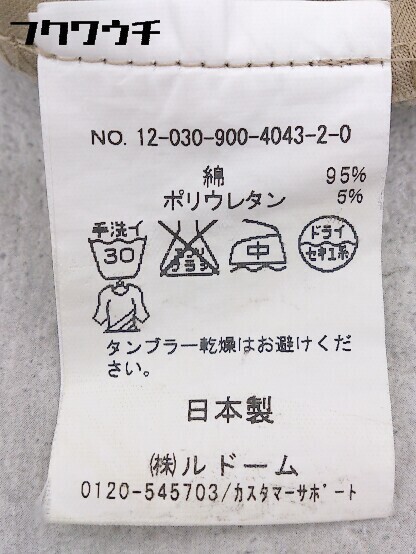 フクワウチ
NO. 12-030-900-4043-2-0
綿 95%
ポリウレタン 5%
手洗イ
30
エンソ
サラシ
中
ドライ
セキユ系
タンブラー乾燥はお避けくだ
さい。
日本製
㈱ルドーム
0120-545703/カスタマーサポート